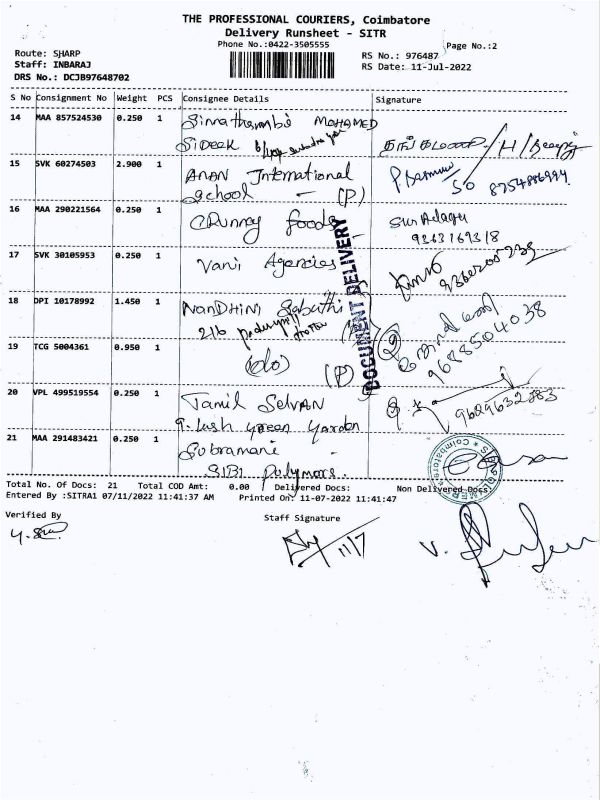 THE PROFESSIONAL COURIERS, Coimbatore
Delivery Runsheet - SITR
Phone No.:0422-3505555
Page No.:2
Route: SHARP
RS No.: 976487
Staff: INBARAJ
RS Date: 11-Jul-2022
DRS No.: DCJB97648702
S No Consignment No Weight PCS Consignee Details Signature
14 MAA 857524530 0.250 1 MOHAMED
SiDeek
15 SVK 60274503 2.900 1 ANAN International
School - (P)
8754886994
16 MAA 290221564 0.250 1 CRunny foods
9363169318
17 SVK 30105953 0.250 1 Vani Agencies
18 DPI 10178992 1.450 1 NanDHiNi
216
9688504038
19 TCG 5004361 0.950 1 (do) (P)
20 VPL 499519554 0.250 1 Tamil Selvan
Lush green Garden
9689632883
21 MAA 291483421 0.250 1 Subramani
SIBI Polymers.
DOCUMENT DELIVERY
Coimbatore
Total No. Of Docs: 21 Total COD Amt: 0.00 / Delivered Docs: Non Delivered Docs:
Entered By :SITRA1 07/11/2022 11:41:37 AM Printed On: 11-07-2022 11:41:47
Verified By
Staff Signature
11/7